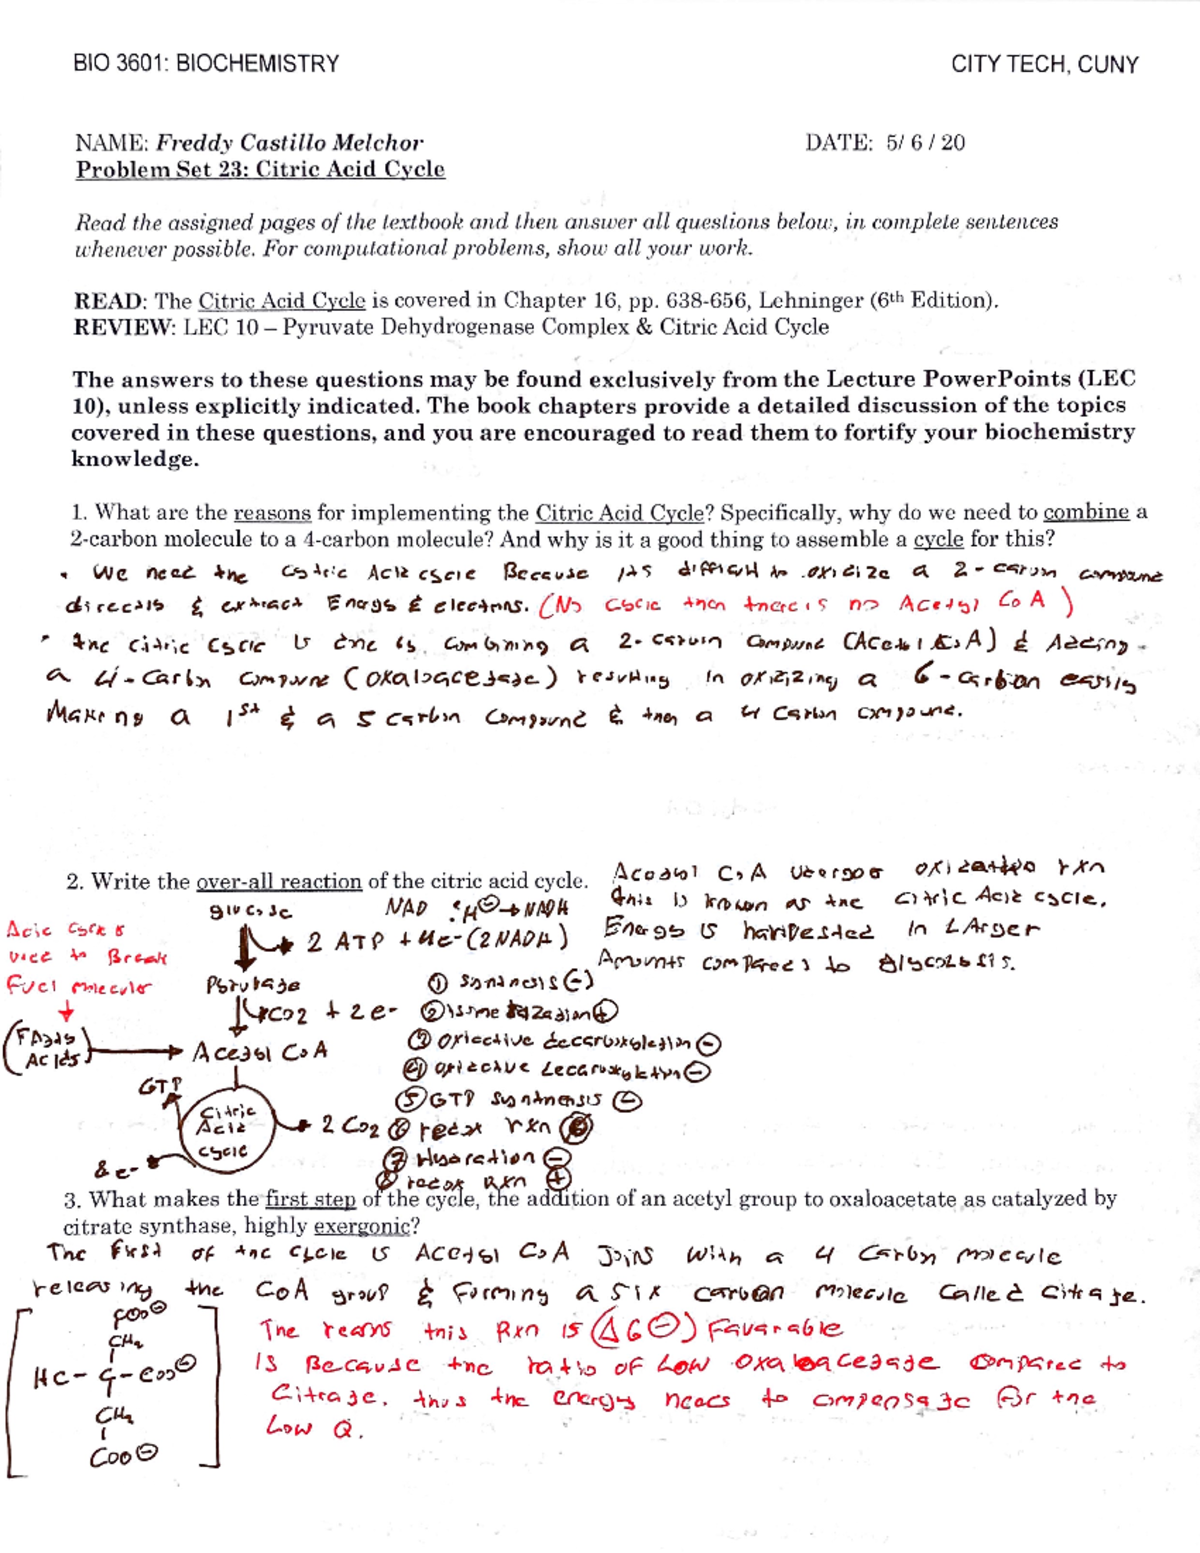 BIO 3601: BIOCHEMISTRY
CITY TECH, CUNY
NAME: Freddy Castillo Melchor
DATE: 5/ 6 / 20
Problem Set 23: Citric Acid Cycle
Read the assigned pages of the textbook and then answer all questions below, in complete sentences
whenever possible. For computational problems, show all your work.
READ: The Citric Acid Cycle is covered in Chapter 16, pp. 638-656, Lehninger (6th Edition).
REVIEW: LEC 10 – Pyruvate Dehydrogenase Complex & Citric Acid Cycle
The answers to these questions may be found exclusively from the Lecture PowerPoints (LEC
10), unless explicitly indicated. The book chapters provide a detailed discussion of the topics
covered in these questions, and you are encouraged to read them to fortify your biochemistry
knowledge.
1. What are the reasons for implementing the Citric Acid Cycle? Specifically, why do we need to combine a
2-carbon molecule to a 4-carbon molecule? And why is it a good thing to assemble a cycle for this?
• We need the Acid Because its difficult to a 2-
& extract Energy & electrons. (No then there is no Acetyl CoA)
• the citric is by combining a 2- (Acetyl CoA) &
a 4-Carbon (oxaloacetate) resulting in a 6-carbon easily
Making a 1st & a 5 carbon Compound & then a 4 Carbon compound.
2. Write the over-all reaction of the citric acid cycle.
Acetyl CoA rxn
this is known as the citric Acid cycle.
Energy is in LArger
Amounts compared to glycolysis.
glucose
NAD :H⊖→NADH
2 ATP + 4e-(2NADH)
Acid
to Break
Fuel molecules
CO2 + 2e-
Acetyl CoA
Acids
GTP
Citric
Acid
cycle
2 CO2
8e-
① (-)
⊕
③ ⊖
④ ⊖
⑤ GTP synthesis ⊖
redox rxn
⑦ ⊖
⑧ redox Rxn ⊕
3. What makes the first step of the cycle, the addition of an acetyl group to oxaloacetate as catalyzed by
citrate synthase, highly exergonic?
The First of the cycle is Acetyl CoA Joins with a 4 Carbon molecule
releasing the CoA group & Forming a Six carbon Molecule Called Citrate.
The this Rxn is (ΔG⊖) Favorable
Is Because the ratio OF Low oxaloacetate Compared to
Citrate. thus the energy needs to compensate for the
Low Q.
COO⊖
CH2
HC-C-COO⊖
CH2
COO⊖